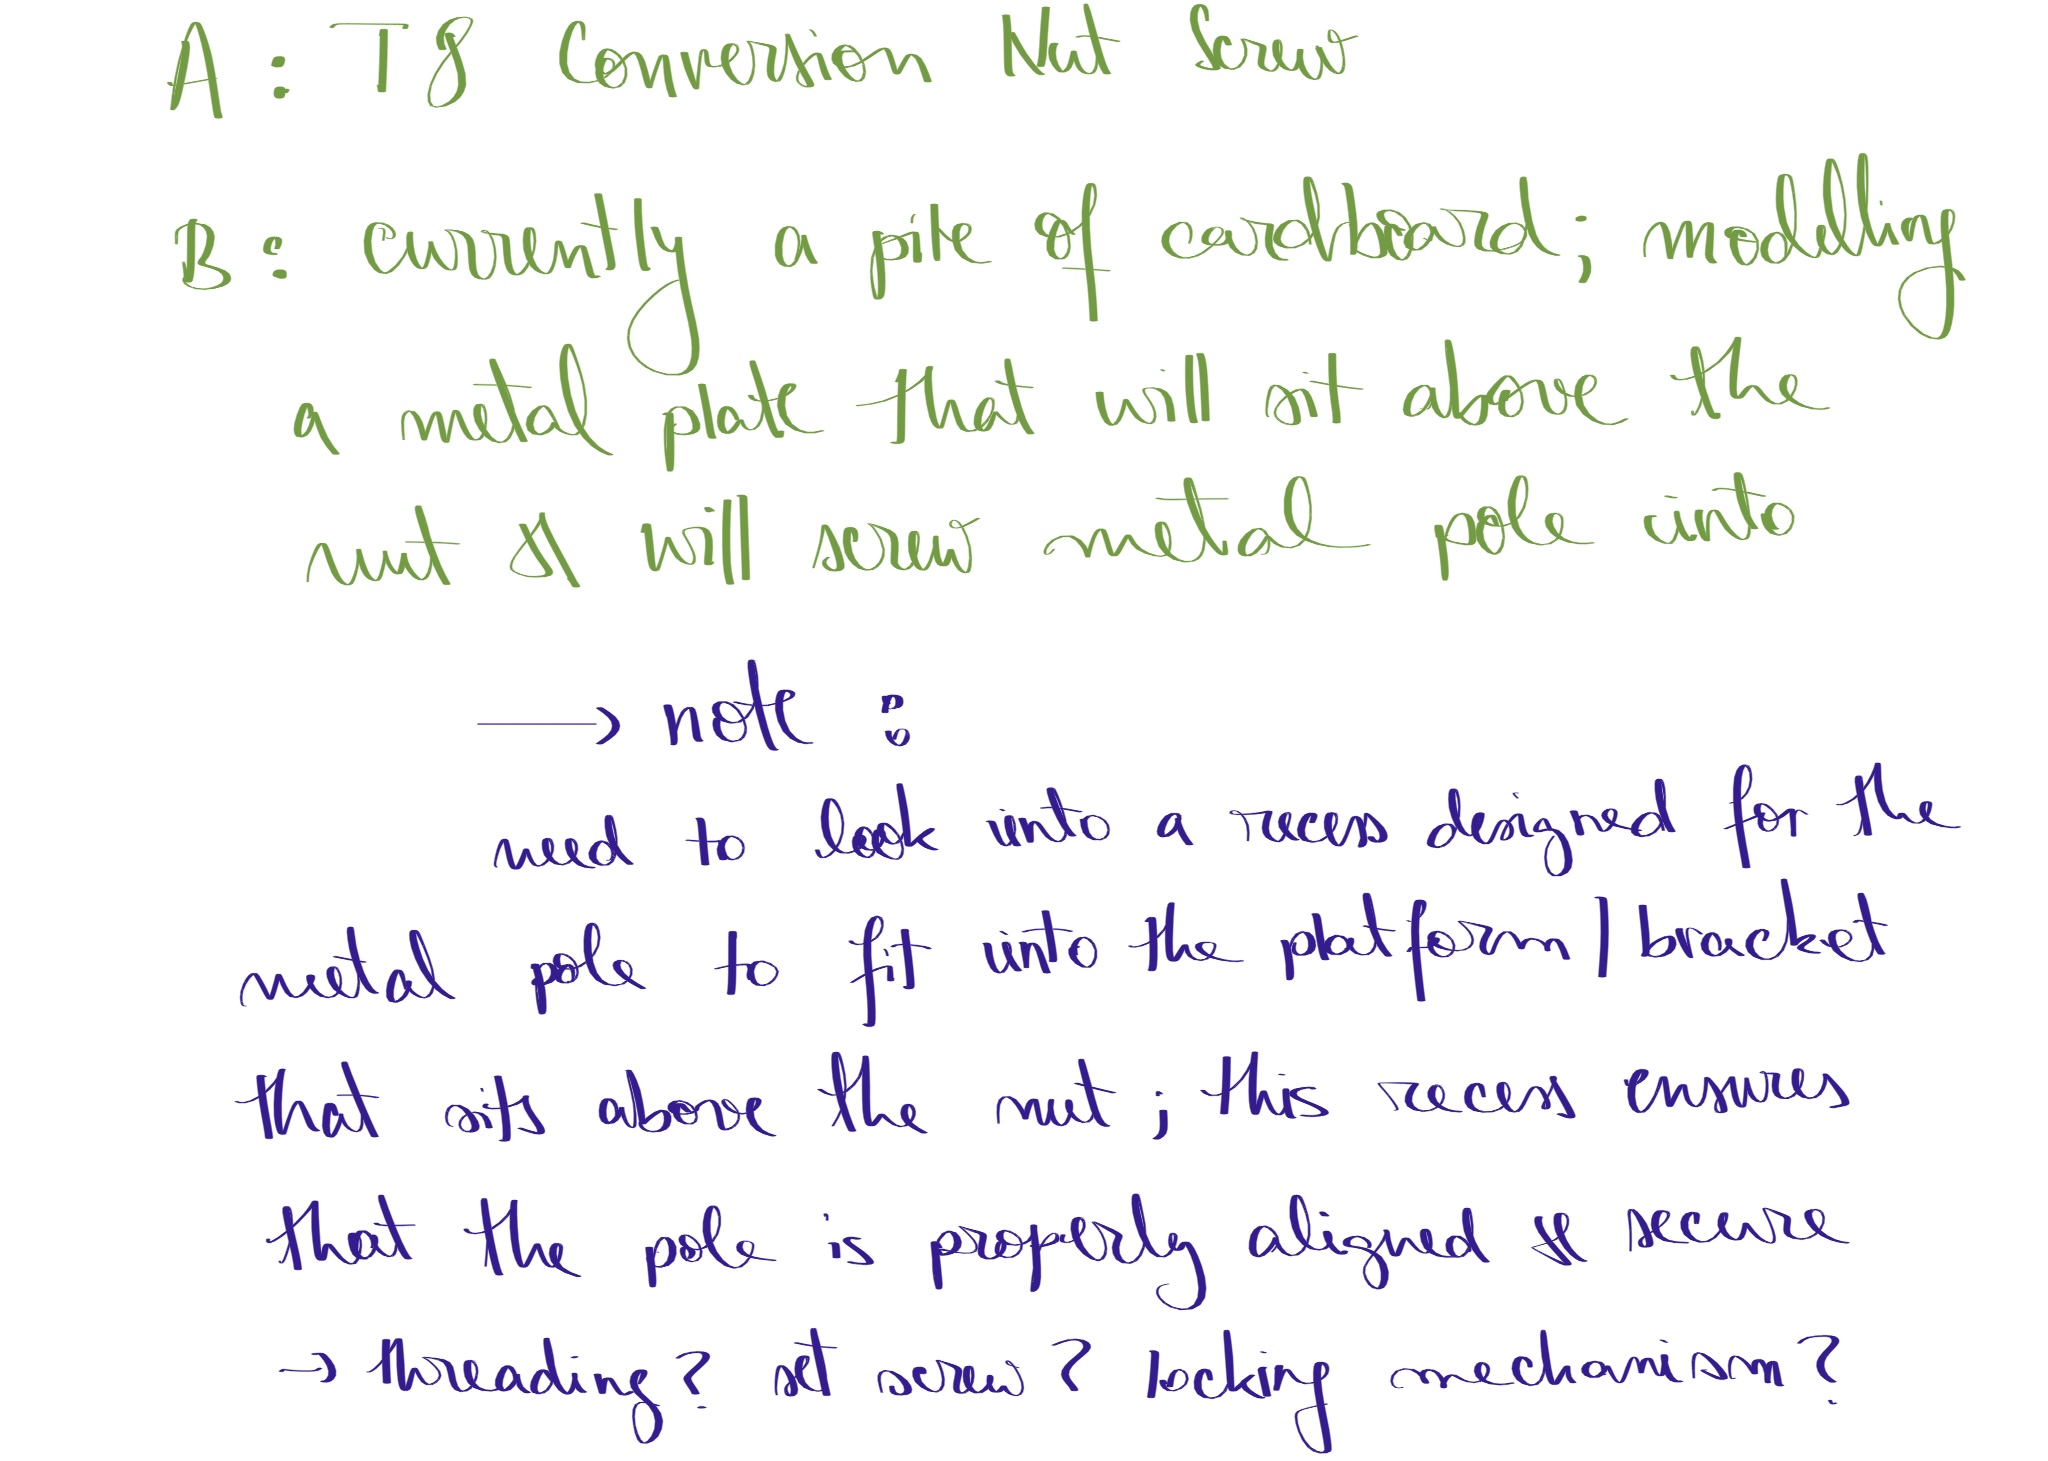 A: T8 Conversion Nut Screw
B: currently a pile of cardboard; modelling
a metal plate that will sit above the
nut & will screw metal pole into
→ note:
need to look into a recess designed for the
metal pole to fit into the platform/bracket
that sits above the nut; this recess ensures
that the pole is properly aligned & secure
→ threading? set screw? locking mechanism?